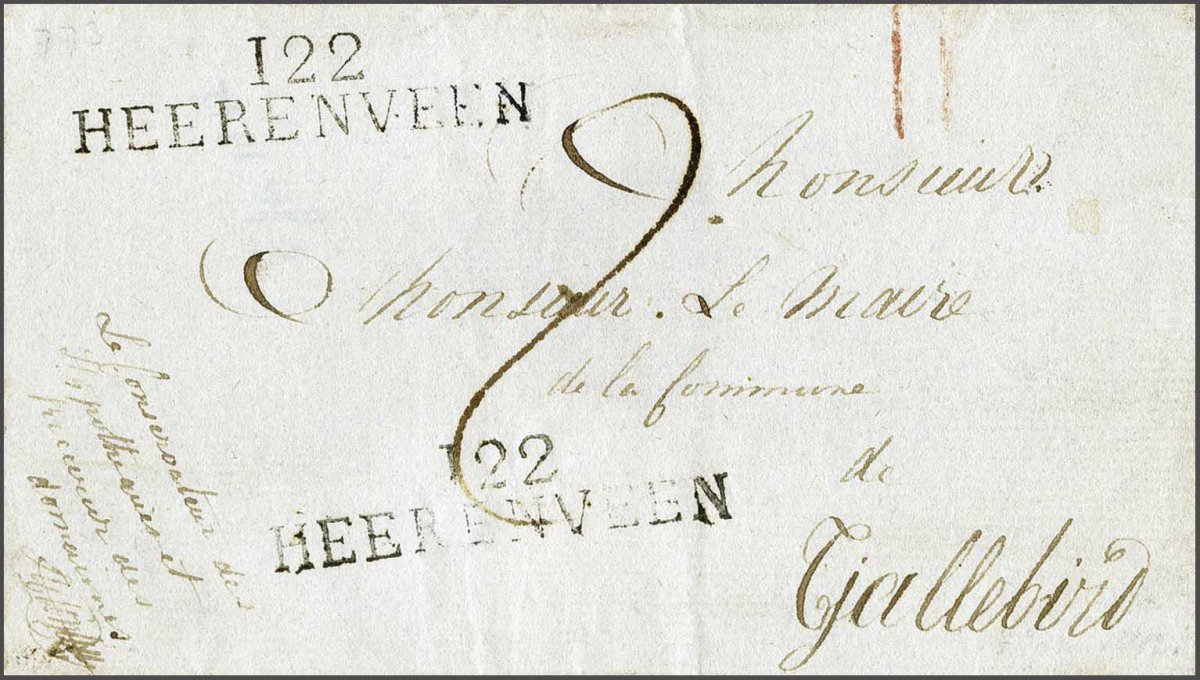 122
HEERENVEEN
Monsieur
Monsieur. Le Maire
de la Commune
de
Tjallebird
122
HEERENVEEN
Le Conservateur des
Hypothecaires et
Receveur des
domaines